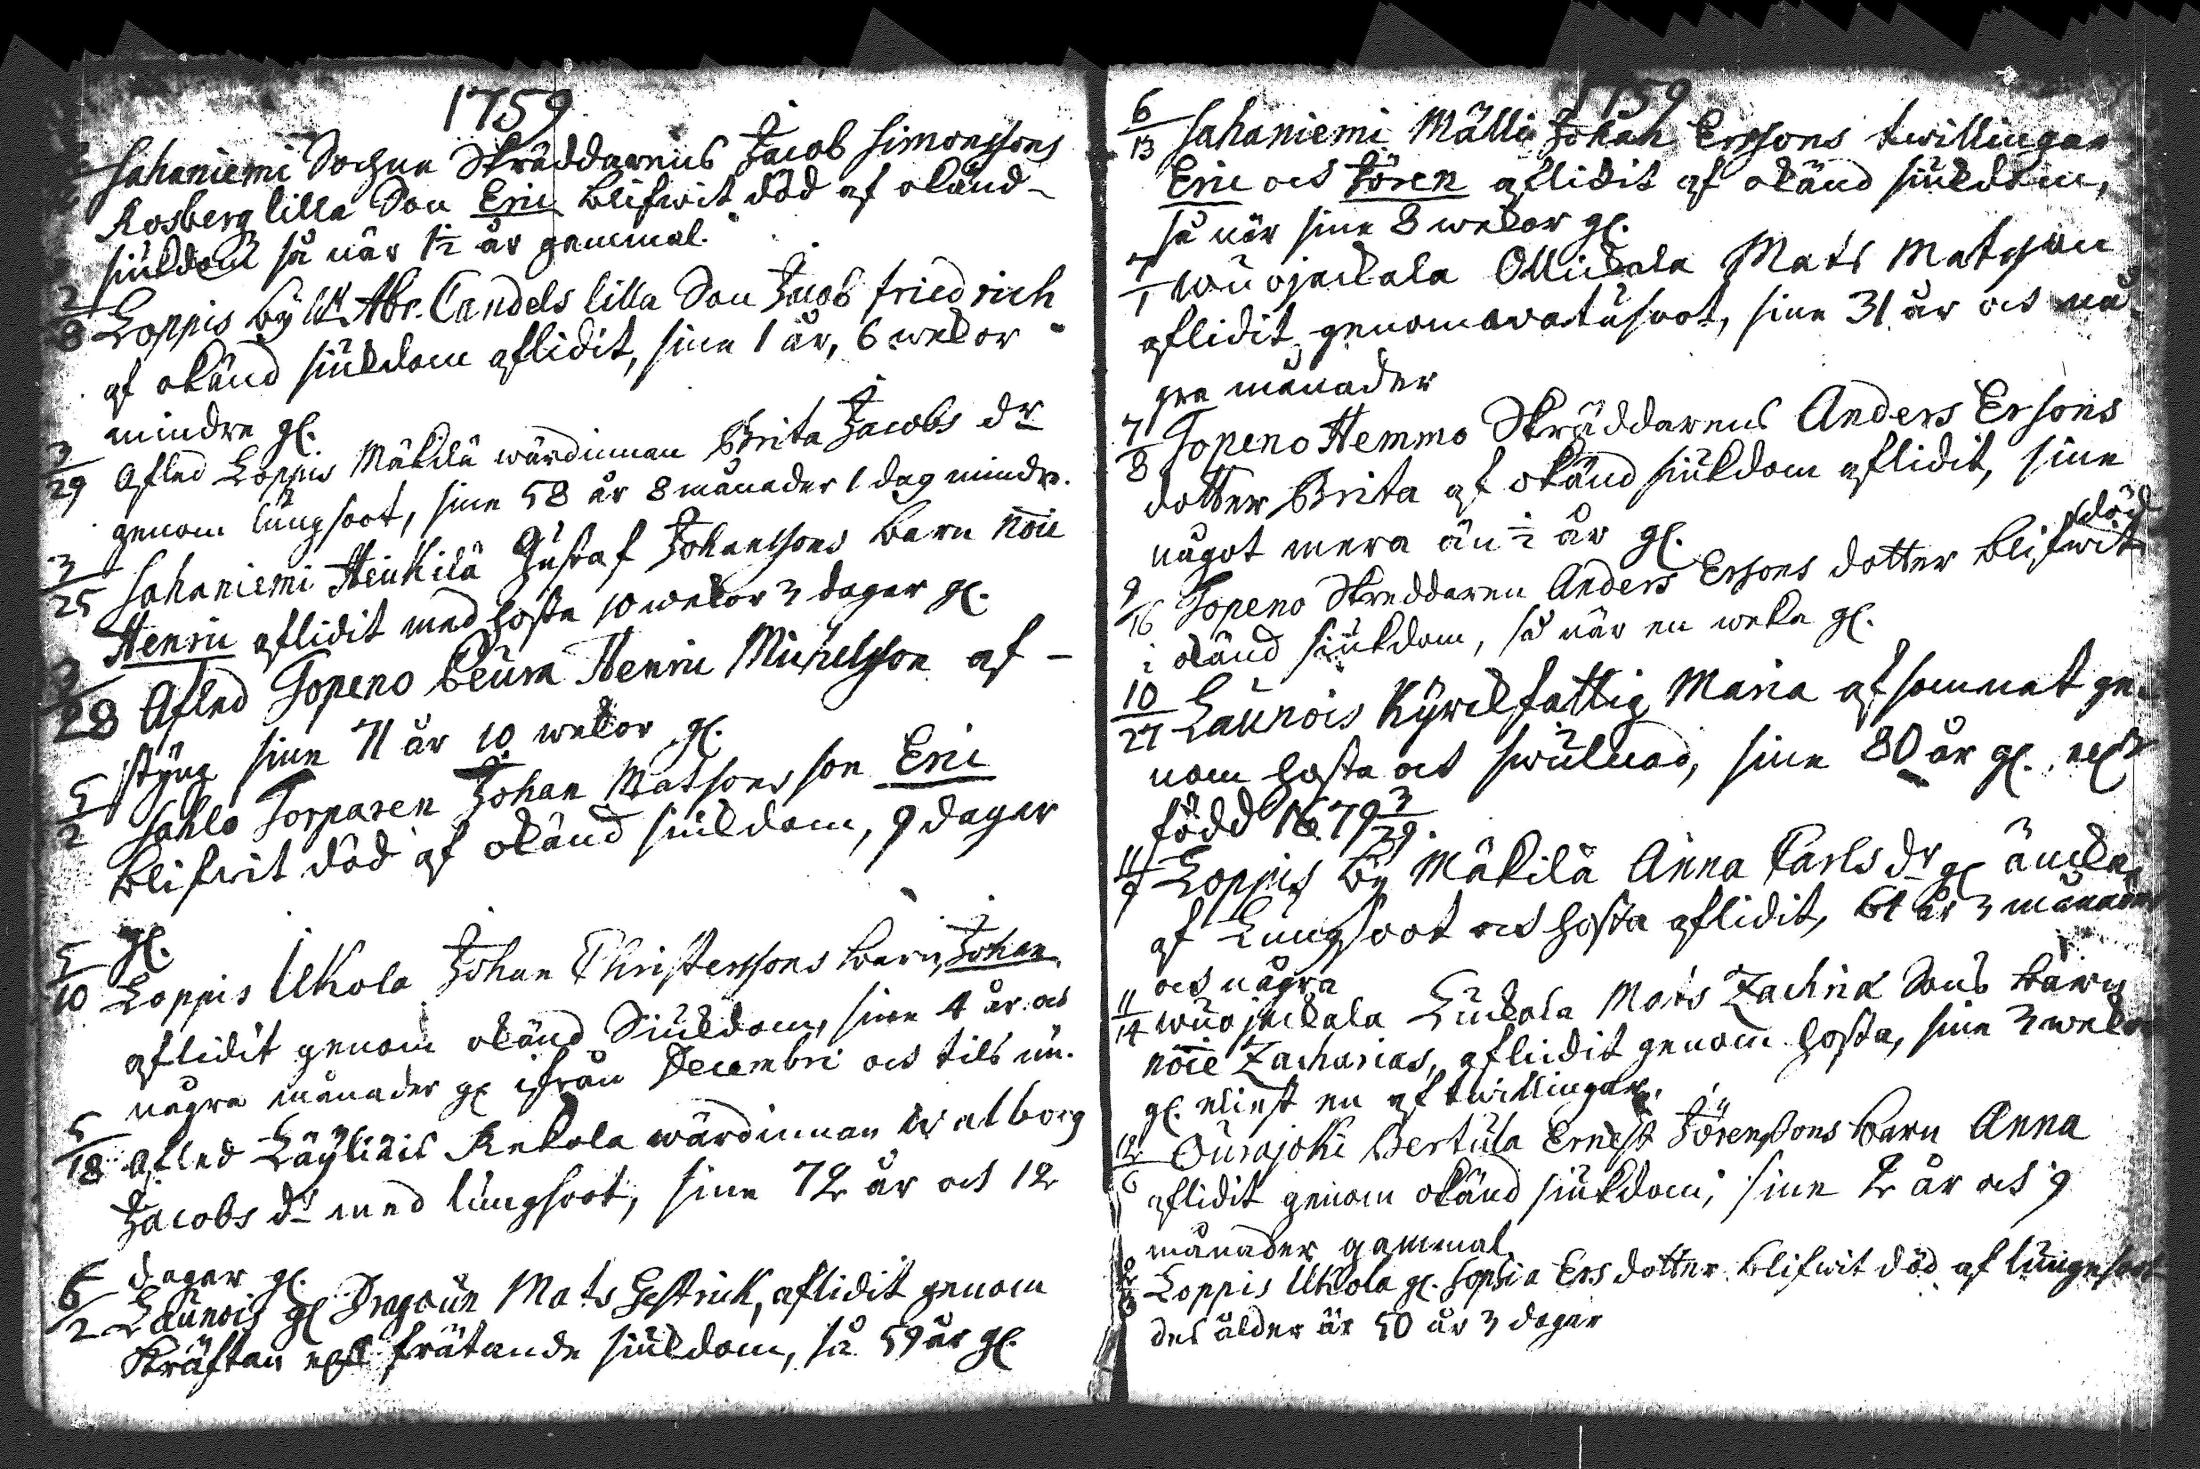 1759
Sahaniemi Sochne Skräddarens Jacob Simonssons
Rosberg lilla Son Eric blifwit död af okänd
siukdom så när 1½ år gammal.
2/8 Loppis by Abr. Candels lilla Son Jacob Friedrich
af okänd siukdom aflidit, sine 1 år, 6 wekor
mindre gl.
3/29 Afled Loppis Mäkilä wärdinnan Brita Jacobs dr
genom lungsoot, sine 58 år 8 månader 1 dag mindr.
3/25 Sahaniemi Heikilä Gustaf Johanssons barn noie
Henric aflidit med hosta 10 wekor 3 dagar gl.
3/28 Afled Topeno Henric Michelsson af
styng sine 71 år 10 wekor gl.
5/2 Sahlo Torparen Johan Matsons son Eric
blifwit död af okänd siukdom, 9 dagar
gl.
5/10 Loppis Ukola Johan Christerssons barn Johan
aflidit genom okänd Siukdom, sine 4 år och
några månader gl ifrån Decembri och tils nu.
5/18 Afled Läyliäis Rekola wärdinnan Walborg
Jacobs dr med lungsoot, sine 72 år och 12
dagar gl.
6/2 Launois gl Dragoun Mats Gestrick, aflidit genom
Kräftan frätande siukdom, så 59 år gl.
1759
6/13 Sahaniemi Mälli Johan Erssons twillingar
Eric och Jören aflidit af okänd siukdom,
så när sine 8 wekor gl.
7/1 Wuojackala Ollickala Mats Matsson
aflidit genom sine 31 år och nå
gra månader
7/8 Topeno Hemmo Skräddarens Anders Ersons
dotter Brita af okänd siukdom aflidit, sine
något mera än ½ år gl.
9/16 Topeno Skreddaren Anders Ersons dotter blifwit död
i okänd siukdom, så när en weka gl.
10/27 Launois Kyrckfattig Maria afsomnat ge-
nom hosta och swulnad, sine 80 år gl.
född 1679 3/29.
11/9 Loppis by Mäkilä Anna Carls dr gl äncka
af Lungsoot och hosta aflidit, 61 år 3 månader
och några
11/14 Wuojackala Luckala Mats Zachriæ Sons barn
noie Zacharias, aflidit genom hosta, sine 3 wekor
gl. en af twillingar.
12/6 Ourajoki Bertula Ernest Jörenssons barn Anna
aflidit genom okänd siukdom, sine 2 år och 9
månader gammal.
Loppis Ukola gl. Sophia Ers dotter blifwit död af lungesoot
des ålder är 50 år 3 dagar